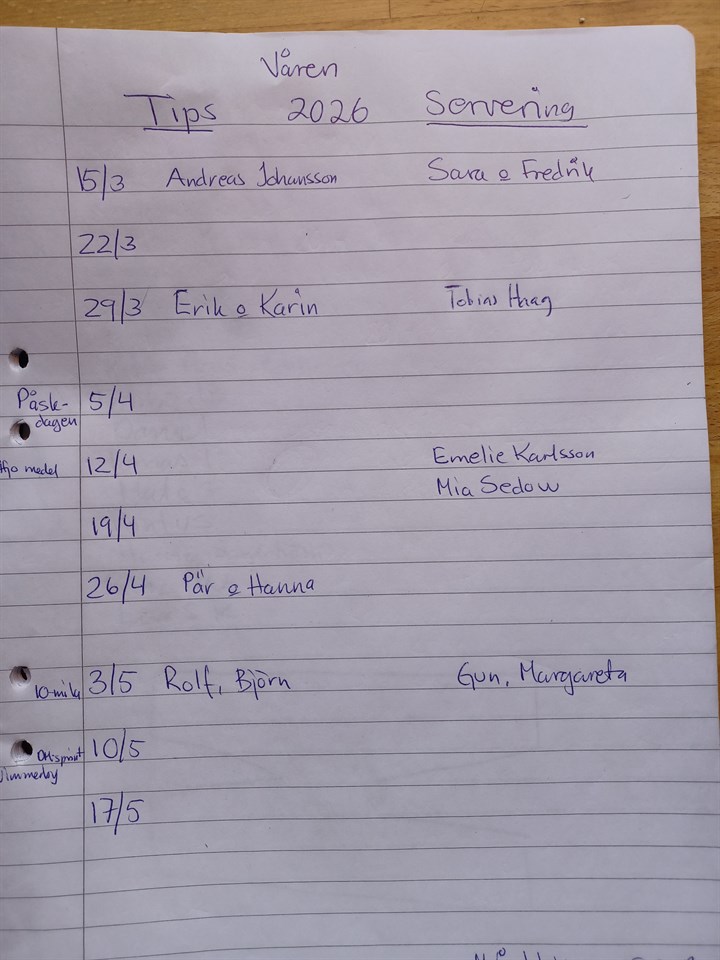 Våren
Tips 2026 Servering
15/3 Andreas Johansson Sara o Fredrik
22/3
29/3 Erik o Karin Tobias Haag
Påsk- 5/4
dagen
medel 12/4 Emelie Karlsson
Mia Sedow
19/4
26/4 Pär o Hanna
10-mila 3/5 Rolf, Björn Gun, Margareta
10/5
17/5